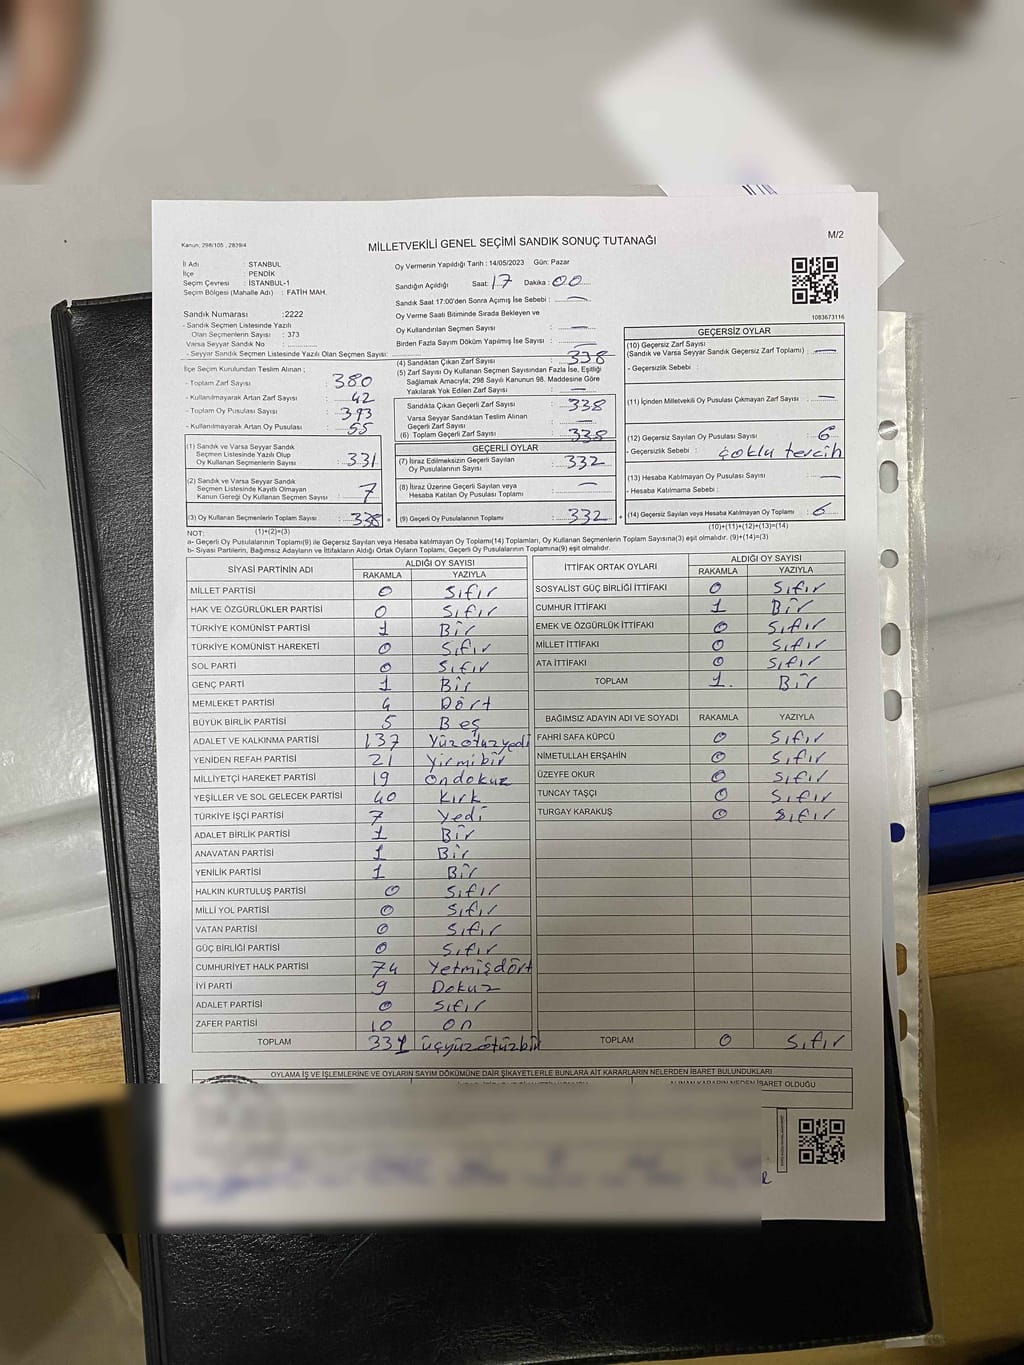 Kanun: 298/105 , 2839/4
MİLLETVEKİLİ GENEL SEÇİMİ SANDIK SONUÇ TUTANAĞI
M/2
İl Adı : STANBUL
İlçe : PENDİK
Seçim Çevresi : İSTANBUL-1
Seçim Bölgesi (Mahalle Adı) : FATİH MAH.
Oy Vermenin Yapıldığı Tarih : 14/05/2023 Gün: Pazar
Sandığın Açıldığı Saat: 17 Dakika: 00
Sandık Saat 17:00'den Sonra Açımış İse Sebebi : —
Oy Verme Saati Bitiminde Sırada Bekleyen ve
Oy Kullandırılan Seçmen Sayısı : —
Birden Fazla Sayım Döküm Yapılmış İse Sayısı : —
1083673116
Sandık Numarası :2222
- Sandık Seçmen Listesinde Yazılı
Olan Seçmenlerin Sayısı : 373
Varsa Seyyar Sandık No :
- Seyyar Sandık Seçmen Listesinde Yazılı Olan Seçmen Sayısı:
İlçe Seçim Kurulundan Teslim Alınan ;
- Toplam Zarf Sayısı : 380
- Kullanılmayarak Artan Zarf Sayısı : 42
- Toplam Oy Pusulası Sayısı : 393
- Kullanılmayarak Artan Oy Pusulası : 55
(1) Sandık ve Varsa Seyyar Sandık
Seçmen Listesinde Yazılı Olup
Oy Kullanan Seçmenlerin Sayısı : 331
(2) Sandık ve Varsa Seyyar Sandık
Seçmen Listesinde Kayıtlı Olmayan
Kanun Gereği Oy Kullanan Seçmen Sayısı : 7
(3) Oy Kullanan Seçmenlerin Toplam Sayısı : 338
(1)+(2)=(3)
(4) Sandıktan Çıkan Zarf Sayısı : 338
(5) Zarf Sayısı Oy Kullanan Seçmen Sayısından Fazla İse, Eşitliği
Sağlamak Amacıyla; 298 Sayılı Kanunun 98. Maddesine Göre
Yakılarak Yok Edilen Zarf Sayısı : —
Sandıkta Çıkan Geçerli Zarf Sayısı : 338
Varsa Seyyar Sandıktan Teslim Alınan
Geçerli Zarf Sayısı : —
(6) Toplam Geçerli Zarf Sayısı : 338
GEÇERLİ OYLAR
(7) İtiraz Edilmeksizin Geçerli Sayılan
Oy Pusulalarının Sayısı : 332
(8) İtiraz Üzerine Geçerli Sayılan veya
Hesaba Katılan Oy Pusulası Toplamı : —
(9) Geçerli Oy Pusulalarının Toplamı : 332
GEÇERSİZ OYLAR
(10) Geçersiz Zarf Sayısı
(Sandık ve Varsa Seyyar Sandık Geçersiz Zarf Toplamı) : —
- Geçersizlik Sebebi :
(11) İçinden Milletvekili Oy Pusulası Çıkmayan Zarf Sayısı : —
(12) Geçersiz Sayılan Oy Pusulası Sayısı : 6
- Geçersizlik Sebebi : çoklu tercih
(13) Hesaba Katılmayan Oy Pusulası Sayısı : —
- Hesaba Katılmama Sebebi :
(14) Geçersiz Sayılan veya Hesaba Katılmayan Oy Toplamı : 6
(10)+(11)+(12)+(13)=(14)
NOT:
a- Geçerli Oy Pusulalarının Toplamı(9) ile Geçersiz Sayılan veya Hesaba Katılmayan Oy Toplamı(14) Toplamları, Oy Kullanan Seçmenlerin Toplam Sayısına(3) eşit olmalıdır. (9)+(14)=(3)
b- Siyasi Partilerin, Bağımsız Adayların ve İttifakların Aldığı Ortak Oyların Toplamı, Geçerli Oy Pusulalarının Toplamına(9) eşit olmalıdır.
SİYASİ PARTİNİN ADI ALDIĞI OY SAYISI
RAKAMLA YAZIYLA
MİLLET PARTİSİ 0 Sıfır
HAK VE ÖZGÜRLÜKLER PARTİSİ 0 Sıfır
TÜRKİYE KOMÜNİST PARTİSİ 1 Bir
TÜRKİYE KOMÜNİST HAREKETİ 0 Sıfır
SOL PARTİ 0 Sıfır
GENÇ PARTİ 1 Bir
MEMLEKET PARTİSİ 4 Dört
BÜYÜK BİRLİK PARTİSİ 5 Beş
ADALET VE KALKINMA PARTİSİ 137 Yüzotuzyedi
YENİDEN REFAH PARTİSİ 21 Yirmibir
MİLLİYETÇİ HAREKET PARTİSİ 19 Ondokuz
YEŞİLLER VE SOL GELECEK PARTİSİ 40 Kırk
TÜRKİYE İŞÇİ PARTİSİ 7 Yedi
ADALET BİRLİK PARTİSİ 1 Bir
ANAVATAN PARTİSİ 1 Bir
YENİLİK PARTİSİ 1 Bir
HALKIN KURTULUŞ PARTİSİ 0 Sıfır
MİLLİ YOL PARTİSİ 0 Sıfır
VATAN PARTİSİ 0 Sıfır
GÜÇ BİRLİĞİ PARTİSİ 0 Sıfır
CUMHURİYET HALK PARTİSİ 74 Yetmişdört
İYİ PARTİ 9 Dokuz
ADALET PARTİSİ 0 Sıfır
ZAFER PARTİSİ 10 On
TOPLAM 331 üçyüzotuzbir
İTTİFAK ORTAK OYLARI ALDIĞI OY SAYISI
RAKAMLA YAZIYLA
SOSYALİST GÜÇ BİRLİĞİ İTTİFAKI 0 Sıfır
CUMHUR İTTİFAKI 1 Bir
EMEK VE ÖZGÜRLÜK İTTİFAKI 0 Sıfır
MİLLET İTTİFAKI 0 Sıfır
ATA İTTİFAKI 0 Sıfır
TOPLAM 1. Bir
BAĞIMSIZ ADAYIN ADI VE SOYADI RAKAMLA YAZIYLA
FAHRİ SAFA KÜPCÜ 0 Sıfır
NİMETULLAH ERŞAHİN 0 Sıfır
ÜZEYFE OKUR 0 Sıfır
TUNCAY TAŞÇI 0 Sıfır
TURGAY KARAKUŞ 0 Sıfır
TOPLAM 0 Sıfır
OYLAMA İŞ VE İŞLEMLERİNE VE OYLARIN SAYIM DÖKÜMÜNE DAİR ŞİKAYETLERLE BUNLARA AİT KARARLARIN NELERDEN İBARET BULUNDUKLARI
ALINAN KARARIN NEDEN İBARET OLDUĞU